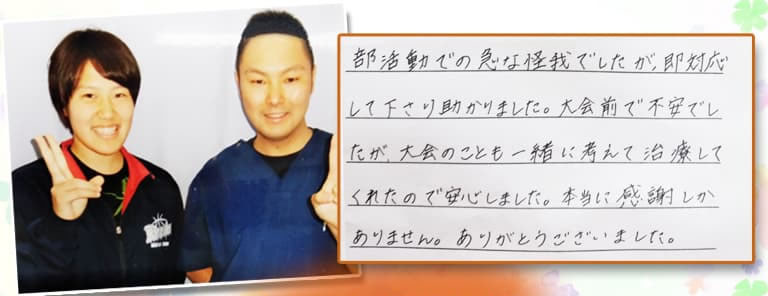 部活動での急な怪我でしたが、即対応
して下さり助かりました。大会前で不安でし
たが、大会のことも一緒に考えて治療して
くれたので安心しました。本当に感謝しか
ありません。ありがとうございました。